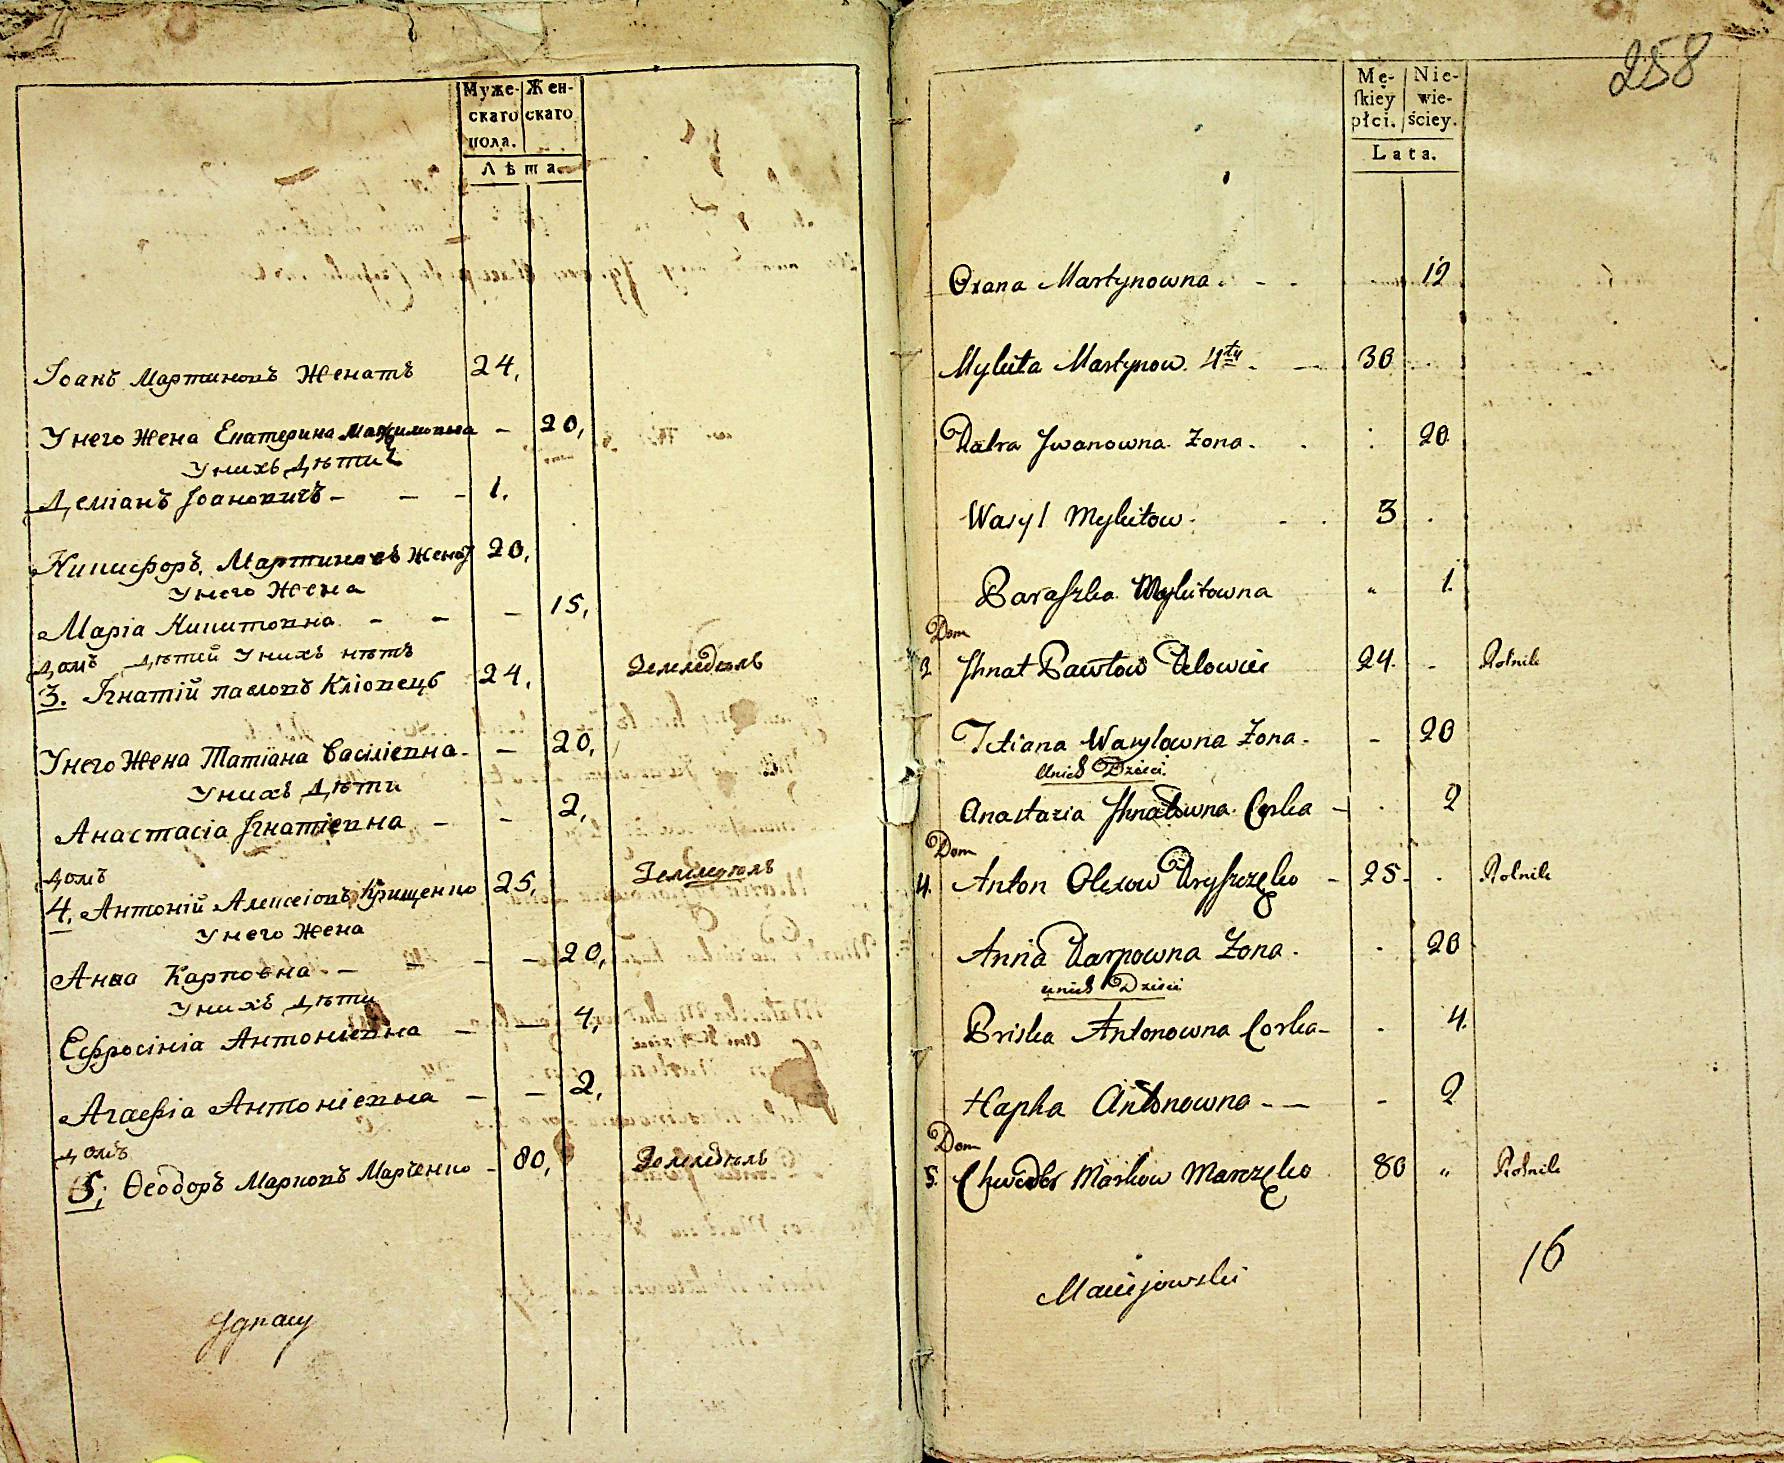 Муже-
скаго
пола.
Жен-
скаго
Лѣта.
Іоанъ Мартиновъ Женатъ 24,
У него Жена Екатерина Максимовна - 20,
У нихъ Дѣти
Деміанъ Іоановичъ - - - 1.
Никифоръ Мартиновъ Женат 20,
У него Жена
Марія Никитовна - - - 15,
Дѣтей У нихъ нѣтъ
Домъ
3. Ігнатій павловъ Кліовецъ 24, Земледѣлъ
У него Жена Татіана Василіевна - - 20,
У нихъ Дѣти
Анастасія Ігнатіевна - - 2,
Домъ
4. Антоній Алексіовъ Крищенко 25, Земледѣлъ
У него Жена
Анна Карповна - - - - 20,
У нихъ Дѣти
Ефросінія Антоніевна - - 4,
Агафія Антоніевна - - 2,
Домъ
5, Ѳеодоръ Марковъ Марченко - 80, Земледѣлъ
Ignacy
258
Mę-
ſkiey
płci.
Nie-
wie-
ściey.
Lata.
Oxana Martynowna. - - 12
Mykita Martynow. 4ty - - 30
Iwanowna Zona. 20
Wasyl Mykitow. 3
Paraszka Mykitowna „ 1.
Dom
3 Ihnat Pawłow Klowiec 24. - Rolnik
Tetiana Wasylowna Zona - - 20
Unich Dzieci.
Anastazia Ihnatowna Corka - 2
Dom
4. Anton Olexow Kryszczęko - 25 - Rolnik
Anna Karpowna Zona. 20
unich Dzieci
Priska Antonowna Corka - 4.
Hapka Antonowna - - - 2
Dom
5. Chwedor Markow Marczęko 80 „ Rolnik
Maciejowski
16